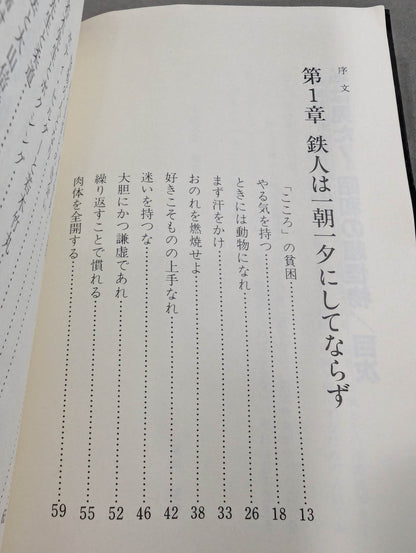 序文
第1章 鉄人は一朝一夕にしてならず
「こころ」の貧困……13
やる気を持つ……18
ときには動物になれ……26
まず汗をかけ……33
おのれを燃焼せよ……38
好きこそものの上手なれ……42
迷いを持つな……46
大胆にかつ謙虚であれ……52
繰り返すことで慣れる……55
肉体を全開する……59